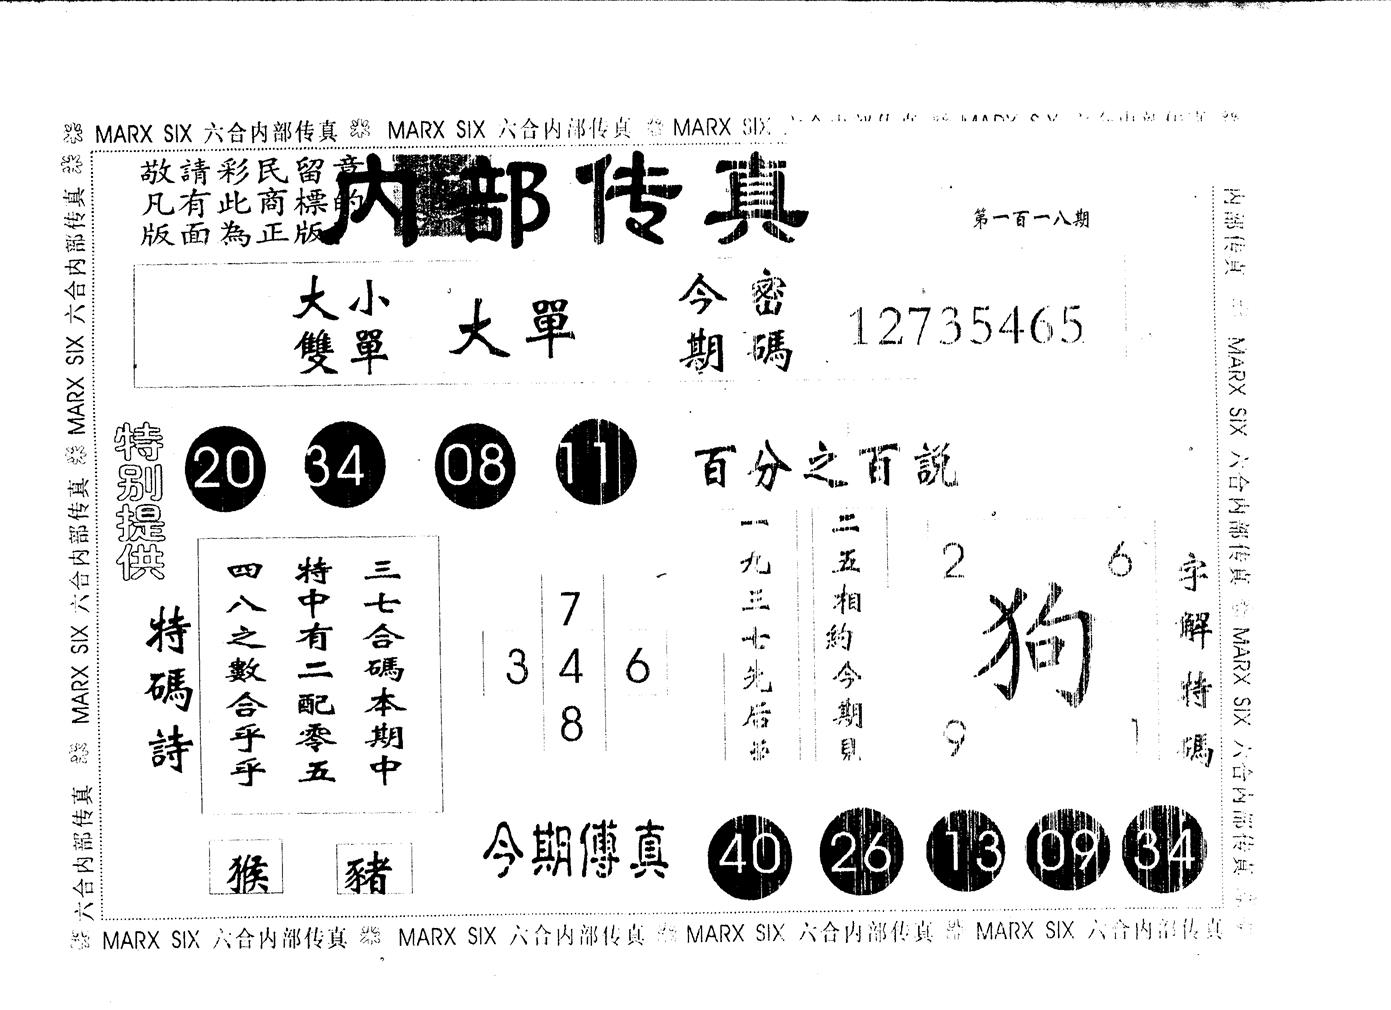 MARX SIX 六合内部传真 MARX SIX 六合内部传真 MARX SIX
敬請彩民留意
凡有此商標的
版面為正版
内部传真
第一百一八期
大小
雙單
大單
今期
密碼
12735465
特别提供
20 34 08 11
百分之百説
特碼詩
三七合碼本期中
特中有二配零五
四八之數合乎乎
7
3 4 6
8
二五相約今期見
一九三七先后
2 6
狗
9 1
字解特碼
猴 豬
今期傳真
40 26 13 09 34
MARX SIX 六合内部传真 MARX SIX 六合内部传真 MARX SIX 六合内部传真 MARX SIX 六合内部传真
六合内部传真 MARX SIX 六合内部传真 MARX SIX 六合内部传真
内部传真 MARX SIX 六合内部传真 MARX SIX 六合内部传真